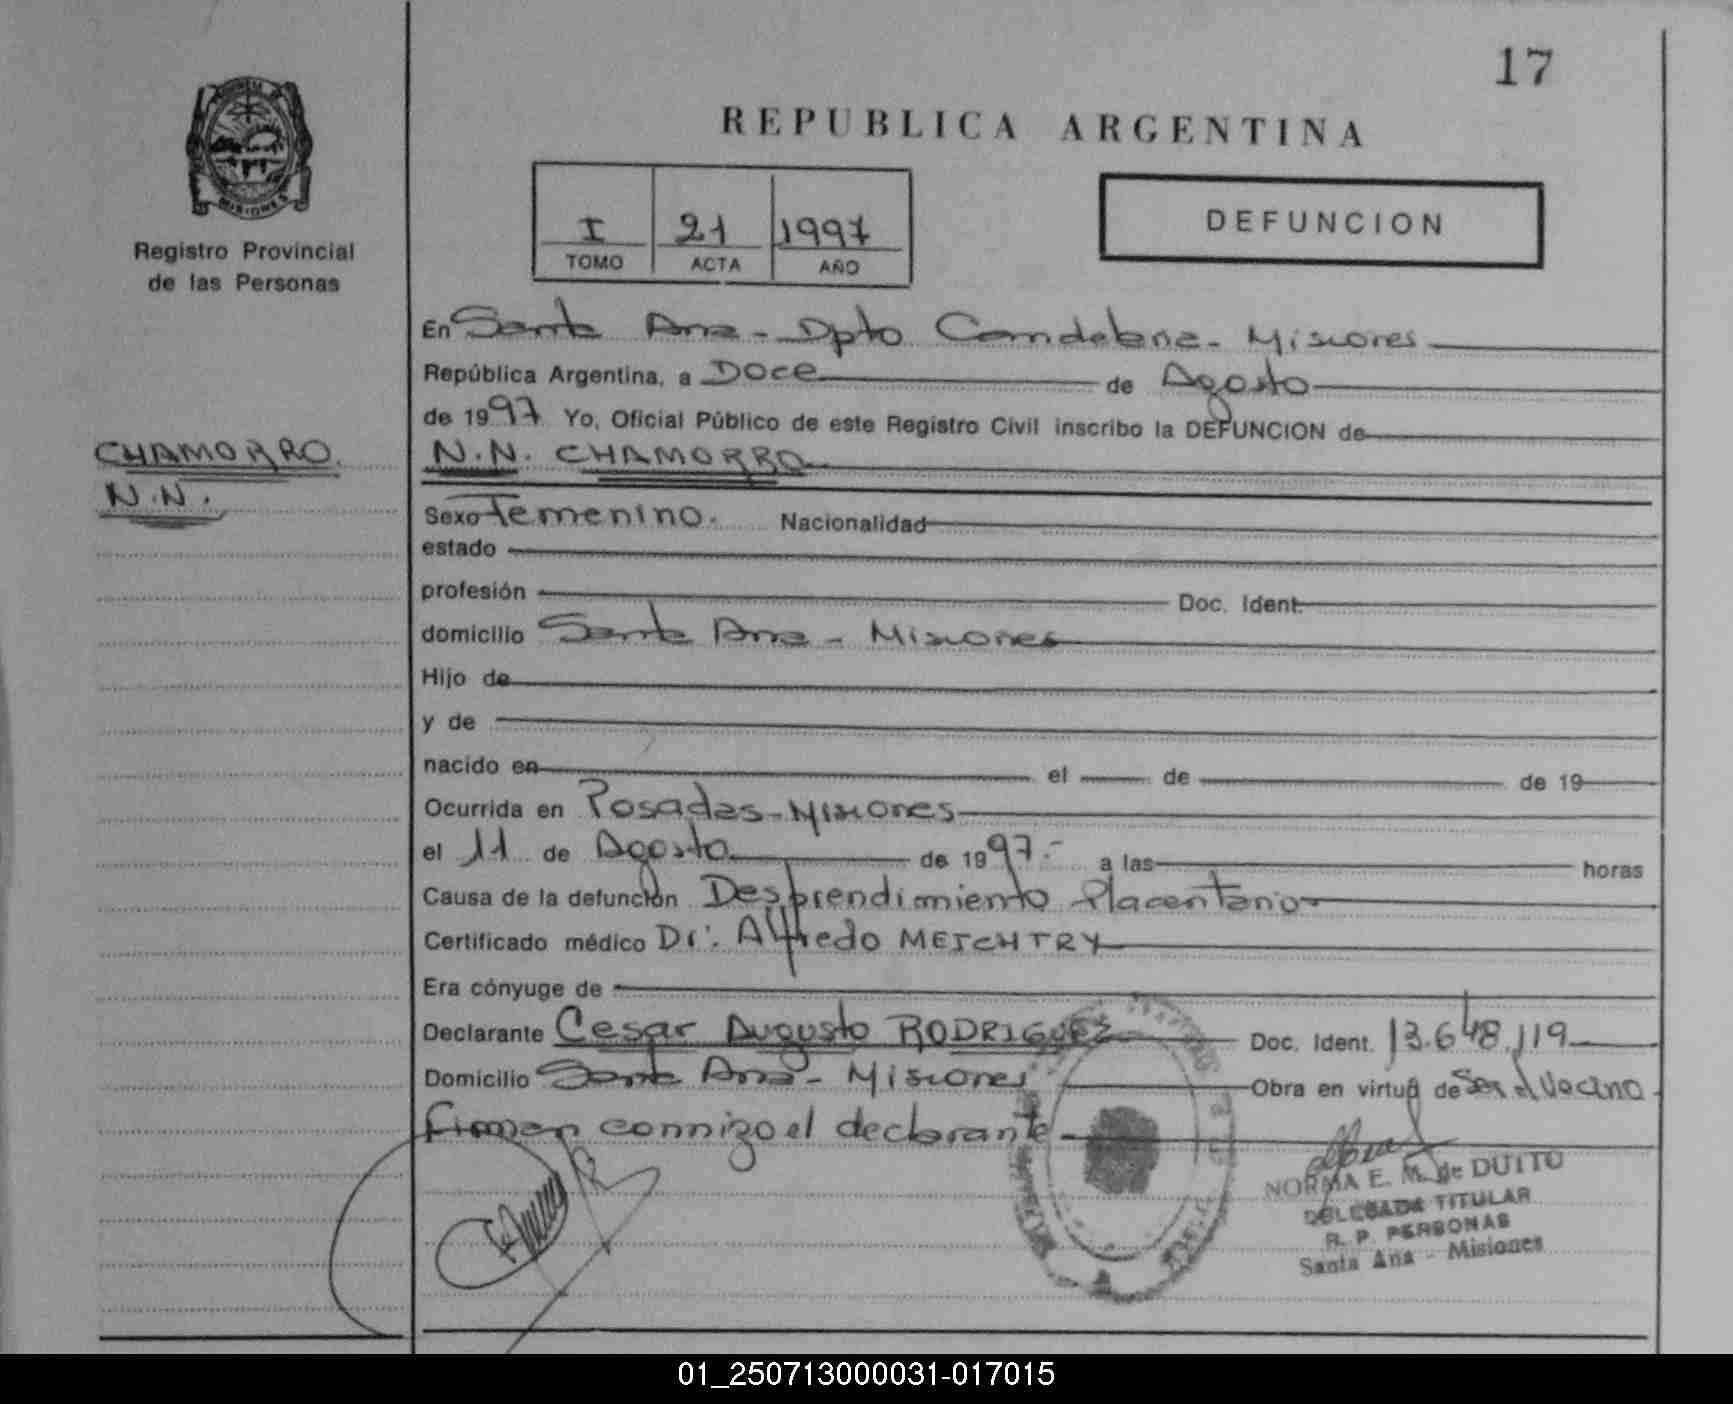 17
REPUBLICA ARGENTINA
MISIONES
Registro Provincial
de las Personas
I 21 1997
TOMO ACTA AÑO
DEFUNCION
En Santa Ana - Dpto Candelaria - Misiones
República Argentina, a Doce de Agosto
de 1997 Yo, Oficial Público de este Registro Civil inscribo la DEFUNCION de
CHAMORRO.
N.N.
N.N. CHAMORRO
Sexo Femenino. Nacionalidad
estado
profesión Doc. Ident.
domicilio Santa Ana - Misiones
Hijo de
y de
nacido en el de de 19
Ocurrida en Posadas - Misiones
el 11 de Agosto de 1997.- a las horas
Causa de la defunción Desprendimiento Placentario
Certificado médico Dr. Alfredo
Era cónyuge de
Declarante Cesar Augusto RODRIGUEZ Doc. Ident. 13.648.119
Domicilio Santa Ana - Misiones Obra en virtud de Ser el Vecino
Firman conmigo el declarante
NORMA E. M. de DUITO
DELEGADA TITULAR
R. P. PERSONAS
Santa Ana - Misiones
01_250713000031-017015